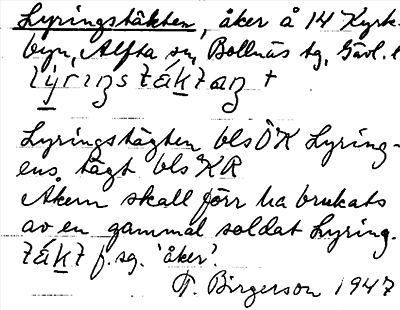 Lyringstäkten, åker å 14 Kyrk-
byn, Alfta sn, Bollnäs tg, Gävl. l
Lyringstägten bls ÖK Lyring-
ens tägt bls KR
Åkern skall förr ha brukats
av en gammal soldat Lyring.
f. sg. 'åker'.
T. Birgerson 1947